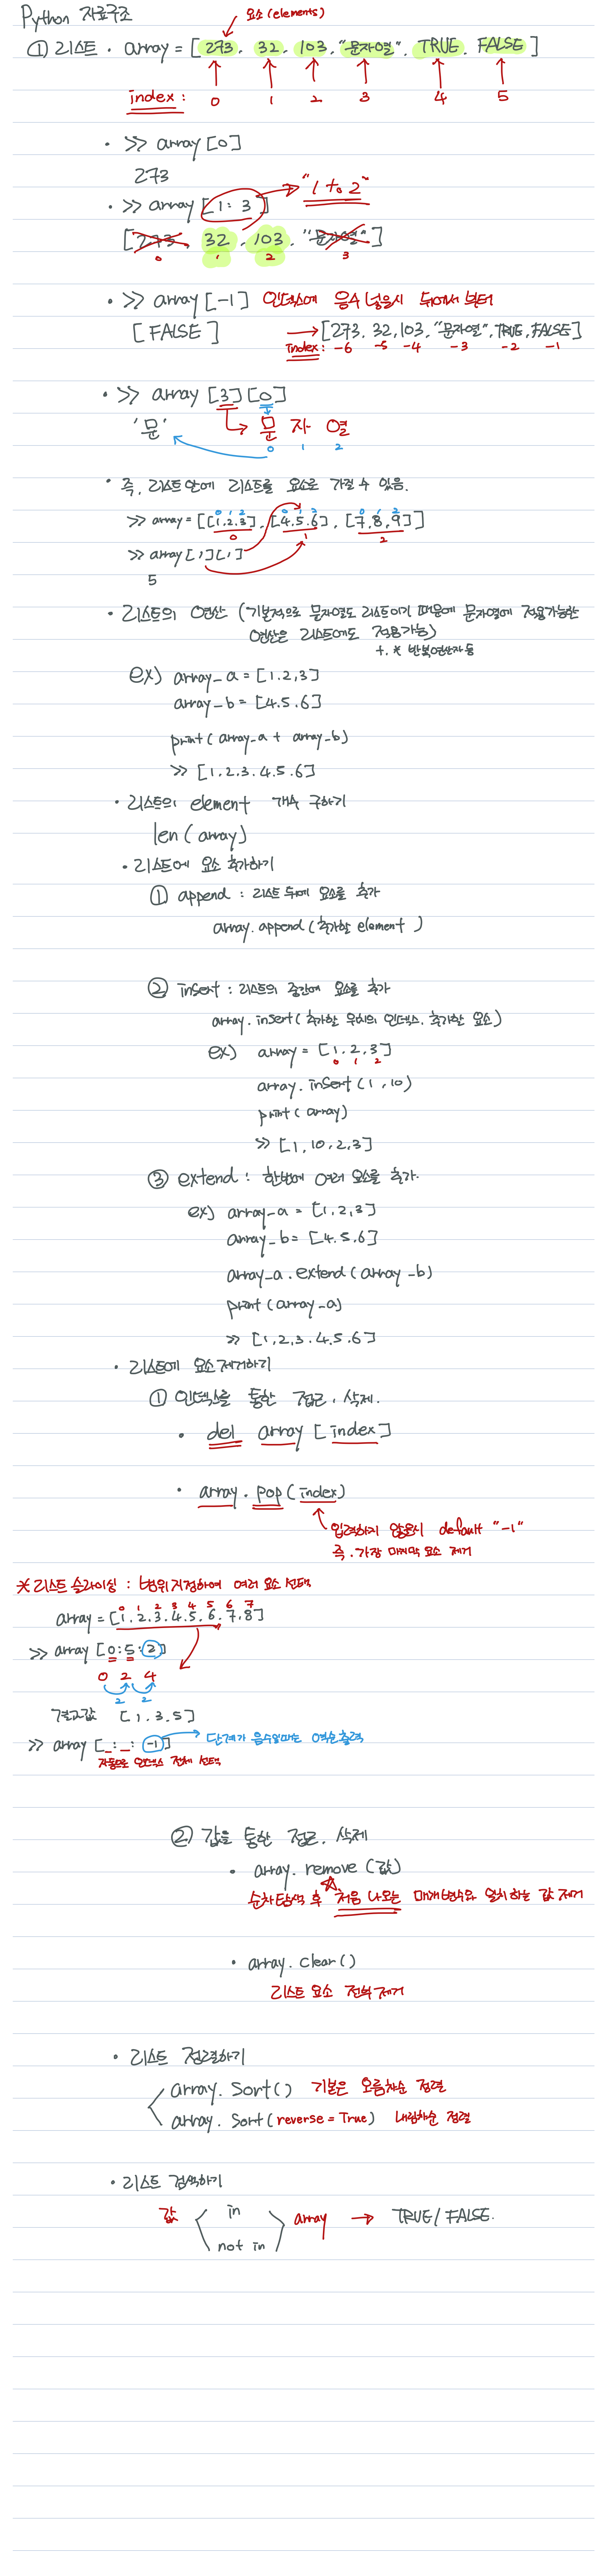 Python 자료구조
요소 (elements)
① 리스트 · array = [ 273, 32, 103, "문자열", TRUE, FALSE ]
index : 0 1 2 3 4 5
· >> array [0]
273
· >> array [1 : 3] → "1 to 2"
[273, 32, 103, "문자열"]
0 1 2 3
· >> array [-1] 인덱스에 음수 넣을시 뒤에서 부터
[ FALSE ] → [273, 32, 103, "문자열", TRUE, FALSE]
Index : -6 -5 -4 -3 -2 -1
· >> array [3][0]
'문' 문 자 열
0 1 2
· 즉, 리스트 안에 리스트를 요소로 가질 수 있음.
0 1 2 0 1 2 0 1 2
>> array = [[1,2,3], [4,5,6], [7,8,9]]
0 1 2
>> array [1][1]
5
· 리스트의 연산 (기본적으로 문자열도 리스트이기 때문에 문자열에 적용가능한
연산은 리스트에도 적용가능)
+, * 반복연산자 등
ex) array_a = [1,2,3]
array_b = [4,5,6]
print( array_a + array_b)
>> [1,2,3,4,5,6]
· 리스트의 element 개수 구하기
len ( array )
· 리스트에 요소 추가하기
① append : 리스트 뒤에 요소를 추가
array.append (추가할 element )
② insert : 리스트의 중간에 요소를 추가
array.insert( 추가할 위치의 인덱스, 추가할 요소)
ex) array = [1,2,3]
0 1 2
array.insert(1,10)
print( array)
>> [1,10,2,3]
③ extend : 한번에 여러 요소를 추가.
ex) array_a = [1,2,3]
array_b = [4,5,6]
array_a.extend( array_b)
print (array_a)
>> [1,2,3,4,5,6]
· 리스트에 요소 제거하기
① 인덱스를 통한 접근, 삭제.
· del array [index]
· array.pop (index)
입력하지 않을시 default "-1"
즉, 가장 마지막 요소 제거
* 리스트 슬라이싱 : 범위 지정하여 여러 요소 선택
0 1 2 3 4 5 6 7
array = [1,2,3,4,5,6,7,8]
>> array [0:5:2]
0 2 4
2 2
결과값 [1,3,5]
>> array [_:_:-1] → 단계가 음수일때는 역순출력
자동으로 인덱스 전체 선택
② 값을 통한 접근, 삭제
· array.remove (값)
순차탐색 후 처음 나오는 매개변수와 일치하는 값 제거
· array.clear()
리스트 요소 전부 제거
· 리스트 정렬하기
array.Sort() 기본은 오름차순 정렬
array.Sort( reverse = True) 내림차순 정렬
· 리스트 검색하기
in
값 array → TRUE / FALSE.
not in